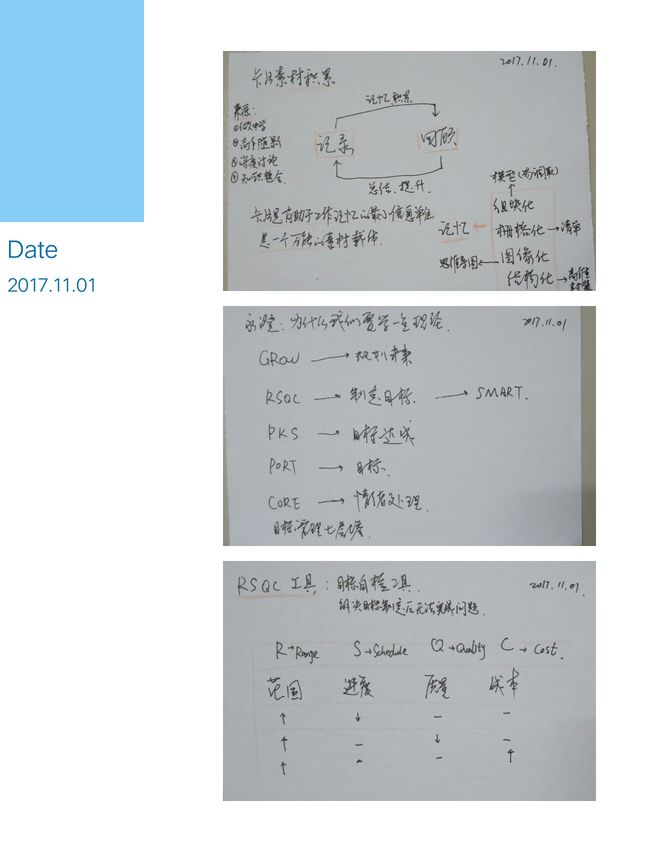 Date
2017.11.01
2017.11.01.
卡片素材积累
记忆积累
来源：
①做中学
②高手随影
③深度讨论
④知识整合
记录 回顾
总结、提升
卡片是有助于工作记忆的最小信息单位
是一个万能的素材载体.
模型(易调取)
组块化
记忆 ← 栅格化 → 清单
思维导图 ← 图像化
结构化 →
为什么我们要学一些理论.
2017.11.01
GROW →
RSQC → 制定目标. → SMART.
PKS → 目标达成
PORT → 目标.
CORE → 情绪处理.
目标管理七层塔
RSQC 工具：目标自检工具.
2017.11.01.
解决目标制定后无法实现问题.
R→Range S→Schedule Q→Quality C→Cost.
范围 进度 质量 成本
↑ ↓ – –
↑ – ↓ –
↑ – – ↑